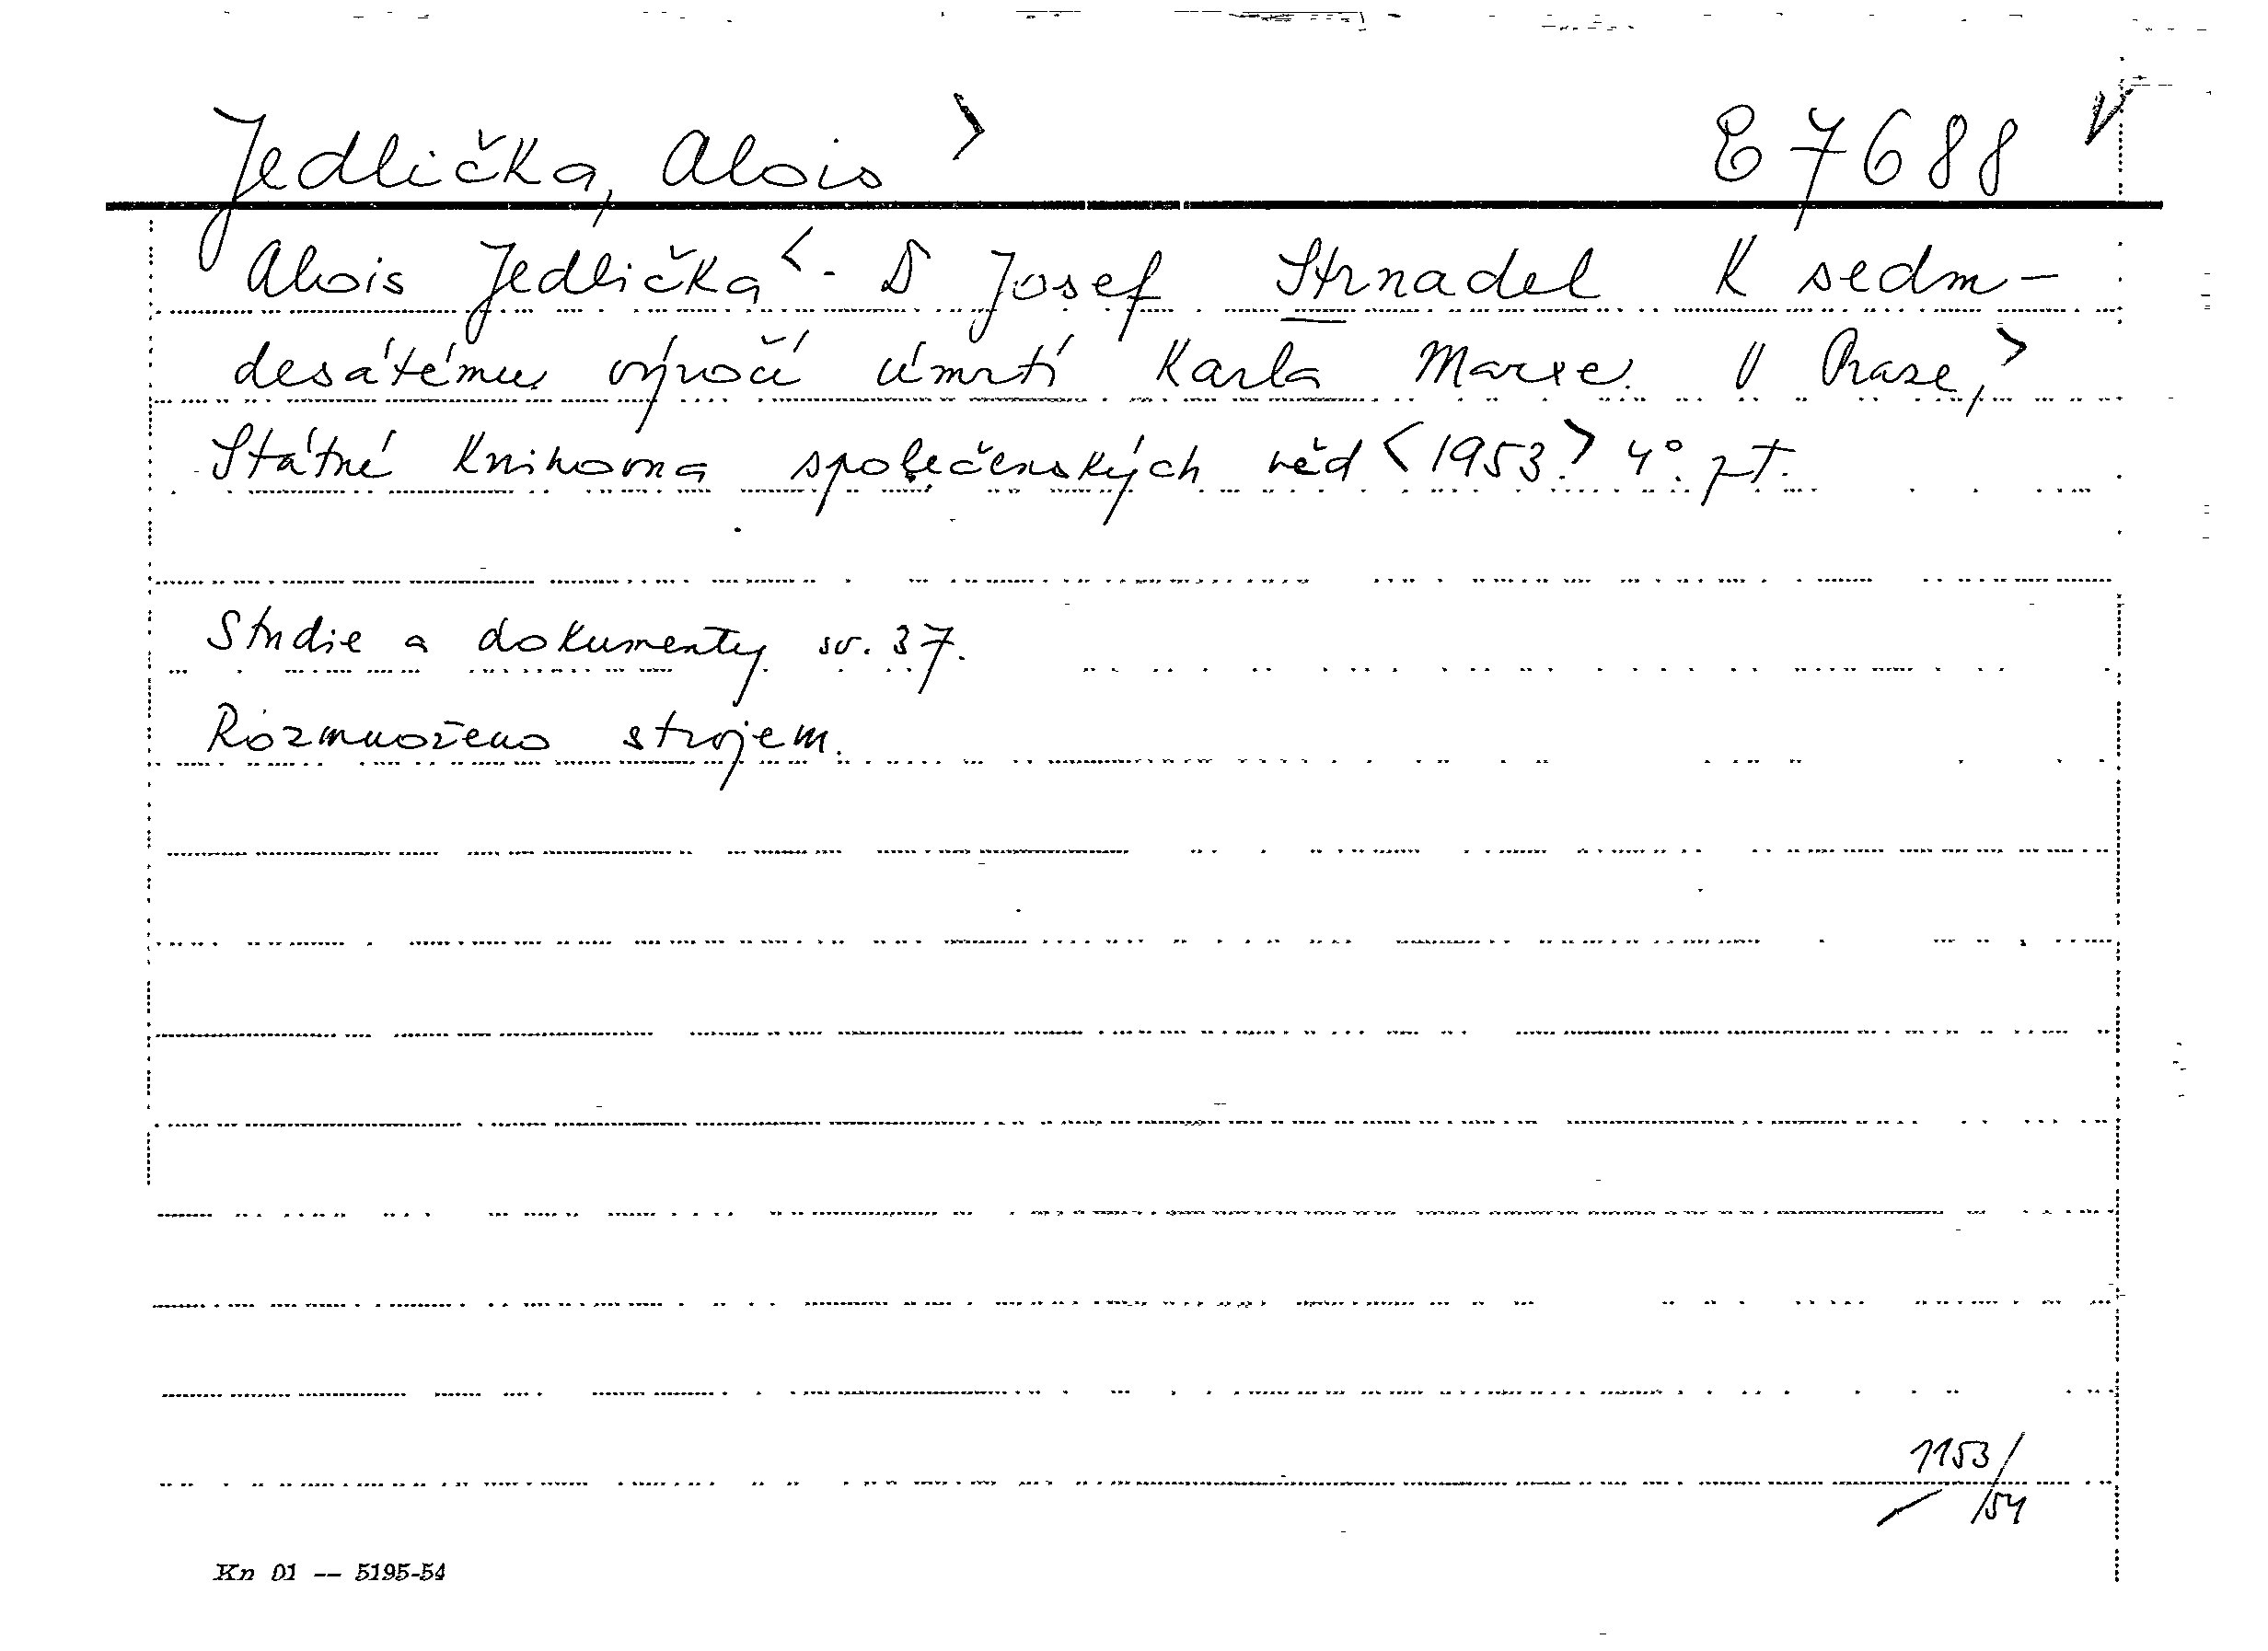 Jedlička, Alois > E 7688 V
Alois Jedlička < - D Josef Strnadel K sedm-
desátému výročí úmrtí Karla Marxe. V Praze, >
Státní knihovna společenských věd <1953.> 4°. pt.
Studie a dokumenty sv. 37.
Rozmnoženo strojem.
1153/
/54
Kn 01 -- 5195-54